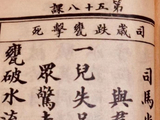 第五十八課
司歲跌甕擊死
司馬
與
一兒失足
眾驚走
甕破水流